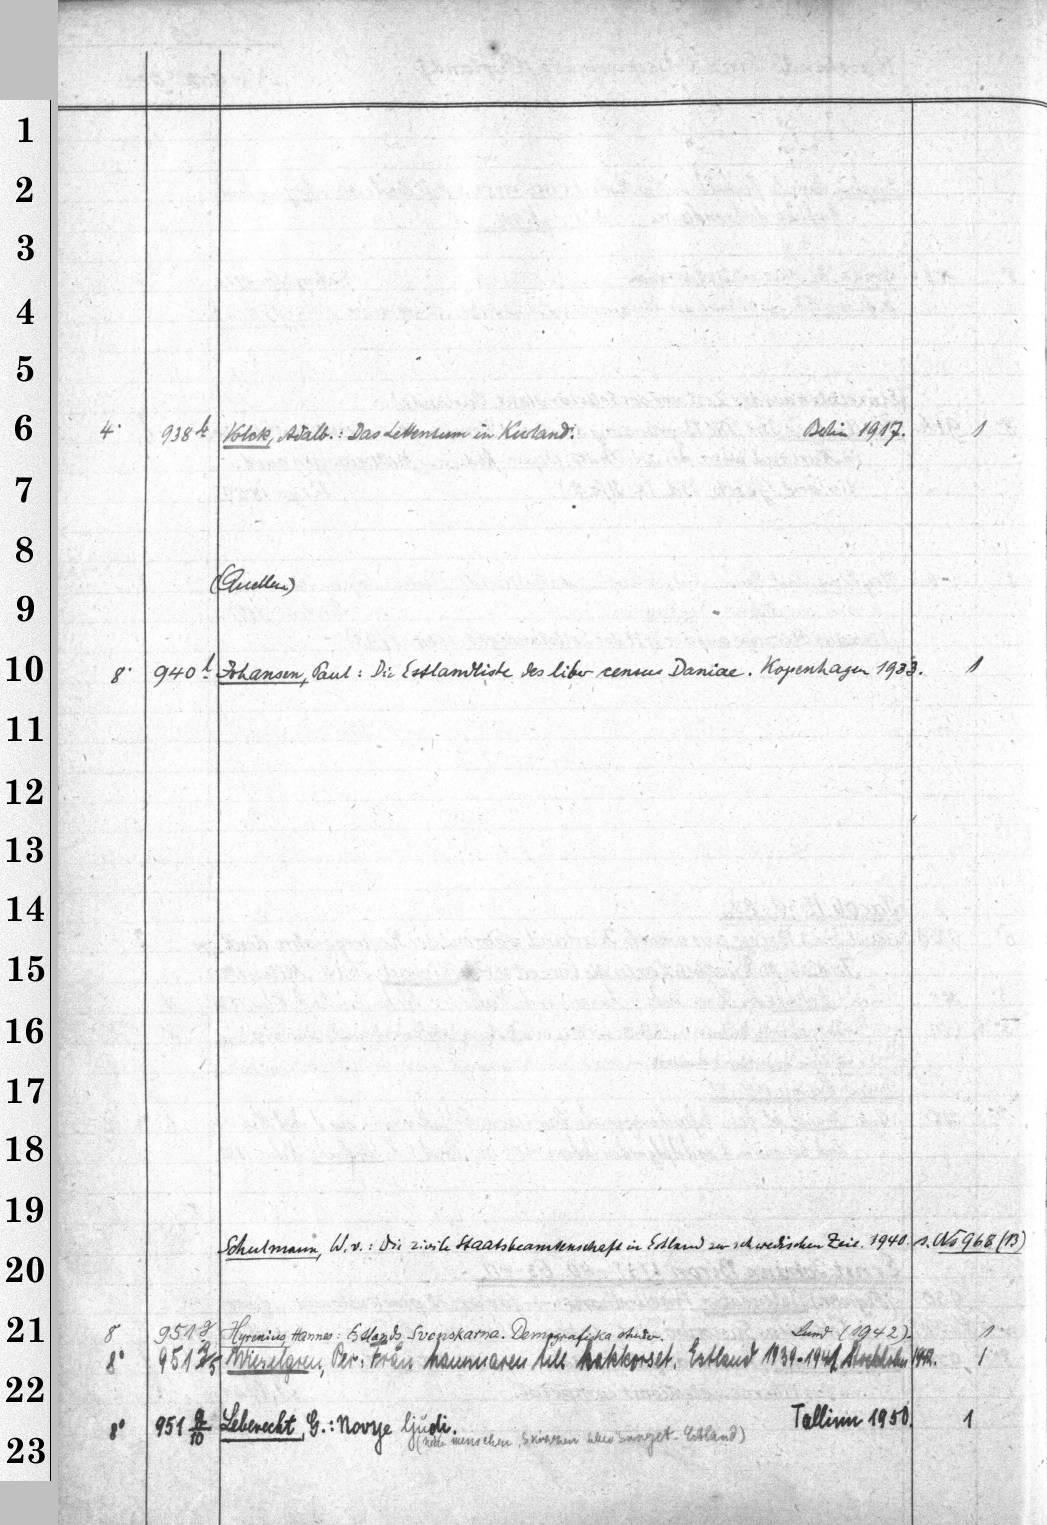 1
2
3
4
5
6 4° 938 k Volck, Adalb.: Das Lettentum in Kurland. Berlin 1917. 1
7
8
(Quellen)
9
10 8° 940 l Johansen, Paul: Die Estlandliste des liber census Daniae. Kopenhagen 1933. 1
11
12
13
14
15
16
17
18
19
Schulmann, W. v.: Die zivile Staatsbeamtenschaft in Estland zur schwedischen Zeit. 1940. s. No 968 (13)
20
21 8° 951 g Hyrenius, Hannes: Estlands Svenskarna. Demografiska studier. Lund (1942). 1
8° 951 g/5 Wieselgren, Per: Från hammaren till hakkorset. Estland 1939-1941. Stockholm 1942. 1
22
8° 951 g/10 Leberecht, G.: Novye ljudi. Tallinn 1950. 1
(neue Menschen, Estland)
23